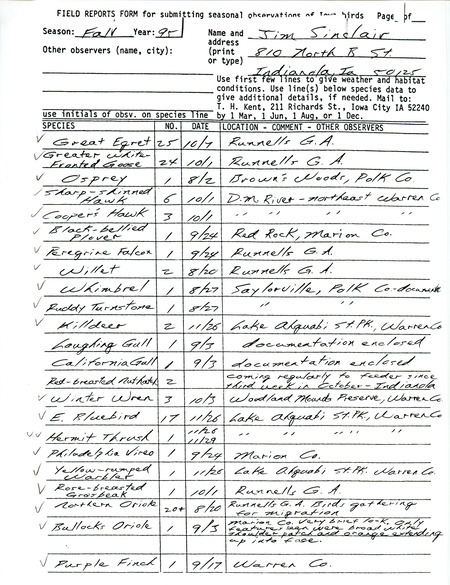 FIELD REPORTS FORM for submitting seasonal observations of Iowa birds Page of
Season: Fall Year: 95 Name and Jim Sinclair
Other observers (name, city): address 810 North B St.
(print
or type) Indianola, Ia 50125
Use first few lines to give weather and habitat
conditions. Use line(s) below species data to
give additional details, if needed. Mail to:
T. H. Kent, 211 Richards St., Iowa City IA 52240
use initials of obsv. on species line by 1 Mar, 1 Jun, 1 Aug, or 1 Dec.
SPECIES NO. DATE LOCATION - COMMENT - OTHER OBSERVERS
✓ Great Egret 25 10/7 Runnells G.A.
✓ Greater White-
Fronted Goose 24 10/1 Runnells G.A.
✓ Osprey 1 8/2 Brown's Woods, Polk Co.
✓ Sharp-shinned
Hawk 6 10/1 D.M River - northeast Warren Co
✓ Cooper's Hawk 3 10/1 " " " "
✓ Black-bellied
Plover 1 9/24 Red Rock, Marion Co.
✓ Peregrine Falcon 1 9/24 Runnells G.A.
✓ Willet 2 8/20 Runnells G.A.
✓ Whimbrel 1 8/27 Saylorville, Polk Co-
✓ Ruddy Turnstone 1 8/27 " "
✓ Killdeer 2 11/26 Lake Ahquabi St.Pk., Warren Co
Laughing Gull 1 9/3 documentation enclosed
California Gull 1 9/3 documentation enclosed
Red-breasted Nuthatch 2 coming regularly to feeder since
third week in October - Indianola
✓ Winter Wren 3 10/3 Woodland Mounds Preserve, Warren Co
✓ E. Bluebird 17 11/26 Lake Ahquabi St.Pk., Warren Co
✓✓ Hermit Thrush 1 11/26 " " " "
11/29
✓ Philadelphia Vireo 1 9/24 Marion Co.
✓ Yellow-rumped
Warbler 1 11/26 Lake Ahquabi St.Pk. Warren Co.
✓ Rose-breasted
Grosbeak 1 10/1 Runnells G.A.
✓ Northern Oriole 20+ 8/20 Runnells G.A. Birds gathering
for migration
✓ Bullocks Oriole 1 9/3 Marion Co. Very brief look, only
features seen were broad white
shoulder patch and orange extending
up into face.
✓ Purple Finch 1 9/17 Warren Co.